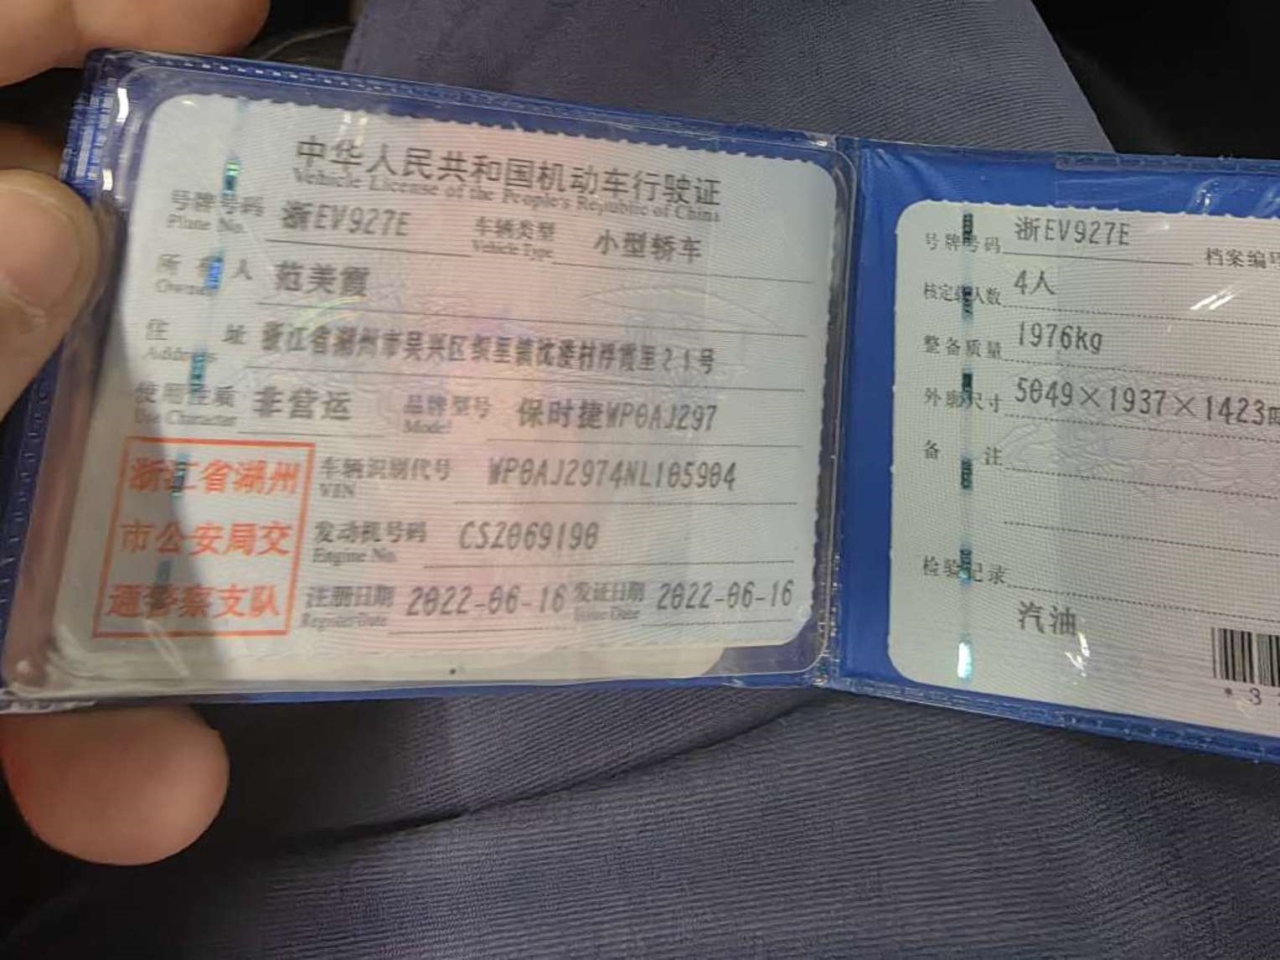 中华人民共和国机动车行驶证
Vehicle License of the People's Republic of China
号牌号码 浙EV927E 车辆类型 小型轿车
Plate No. Vehicle Type
所有人 范美霞
Owner
住址 浙江省湖州市吴兴区织里镇沈溇村浮霞里21号
Address
使用性质 非营运 品牌型号 保时捷WP0AJ297
Use Character Model
浙江省湖州
市公安局交
通警察支队
车辆识别代号 WP0AJ2974NL105904
VIN
发动机号码 CSZ069190
Engine No.
注册日期 2022-06-16 发证日期 2022-06-16
Register Date Issue Date
号牌号码 浙EV927E 档案编号
核定载人数 4人
整备质量 1976kg
外廓尺寸 5049×1937×1423
备注
检验记录
汽油
*3